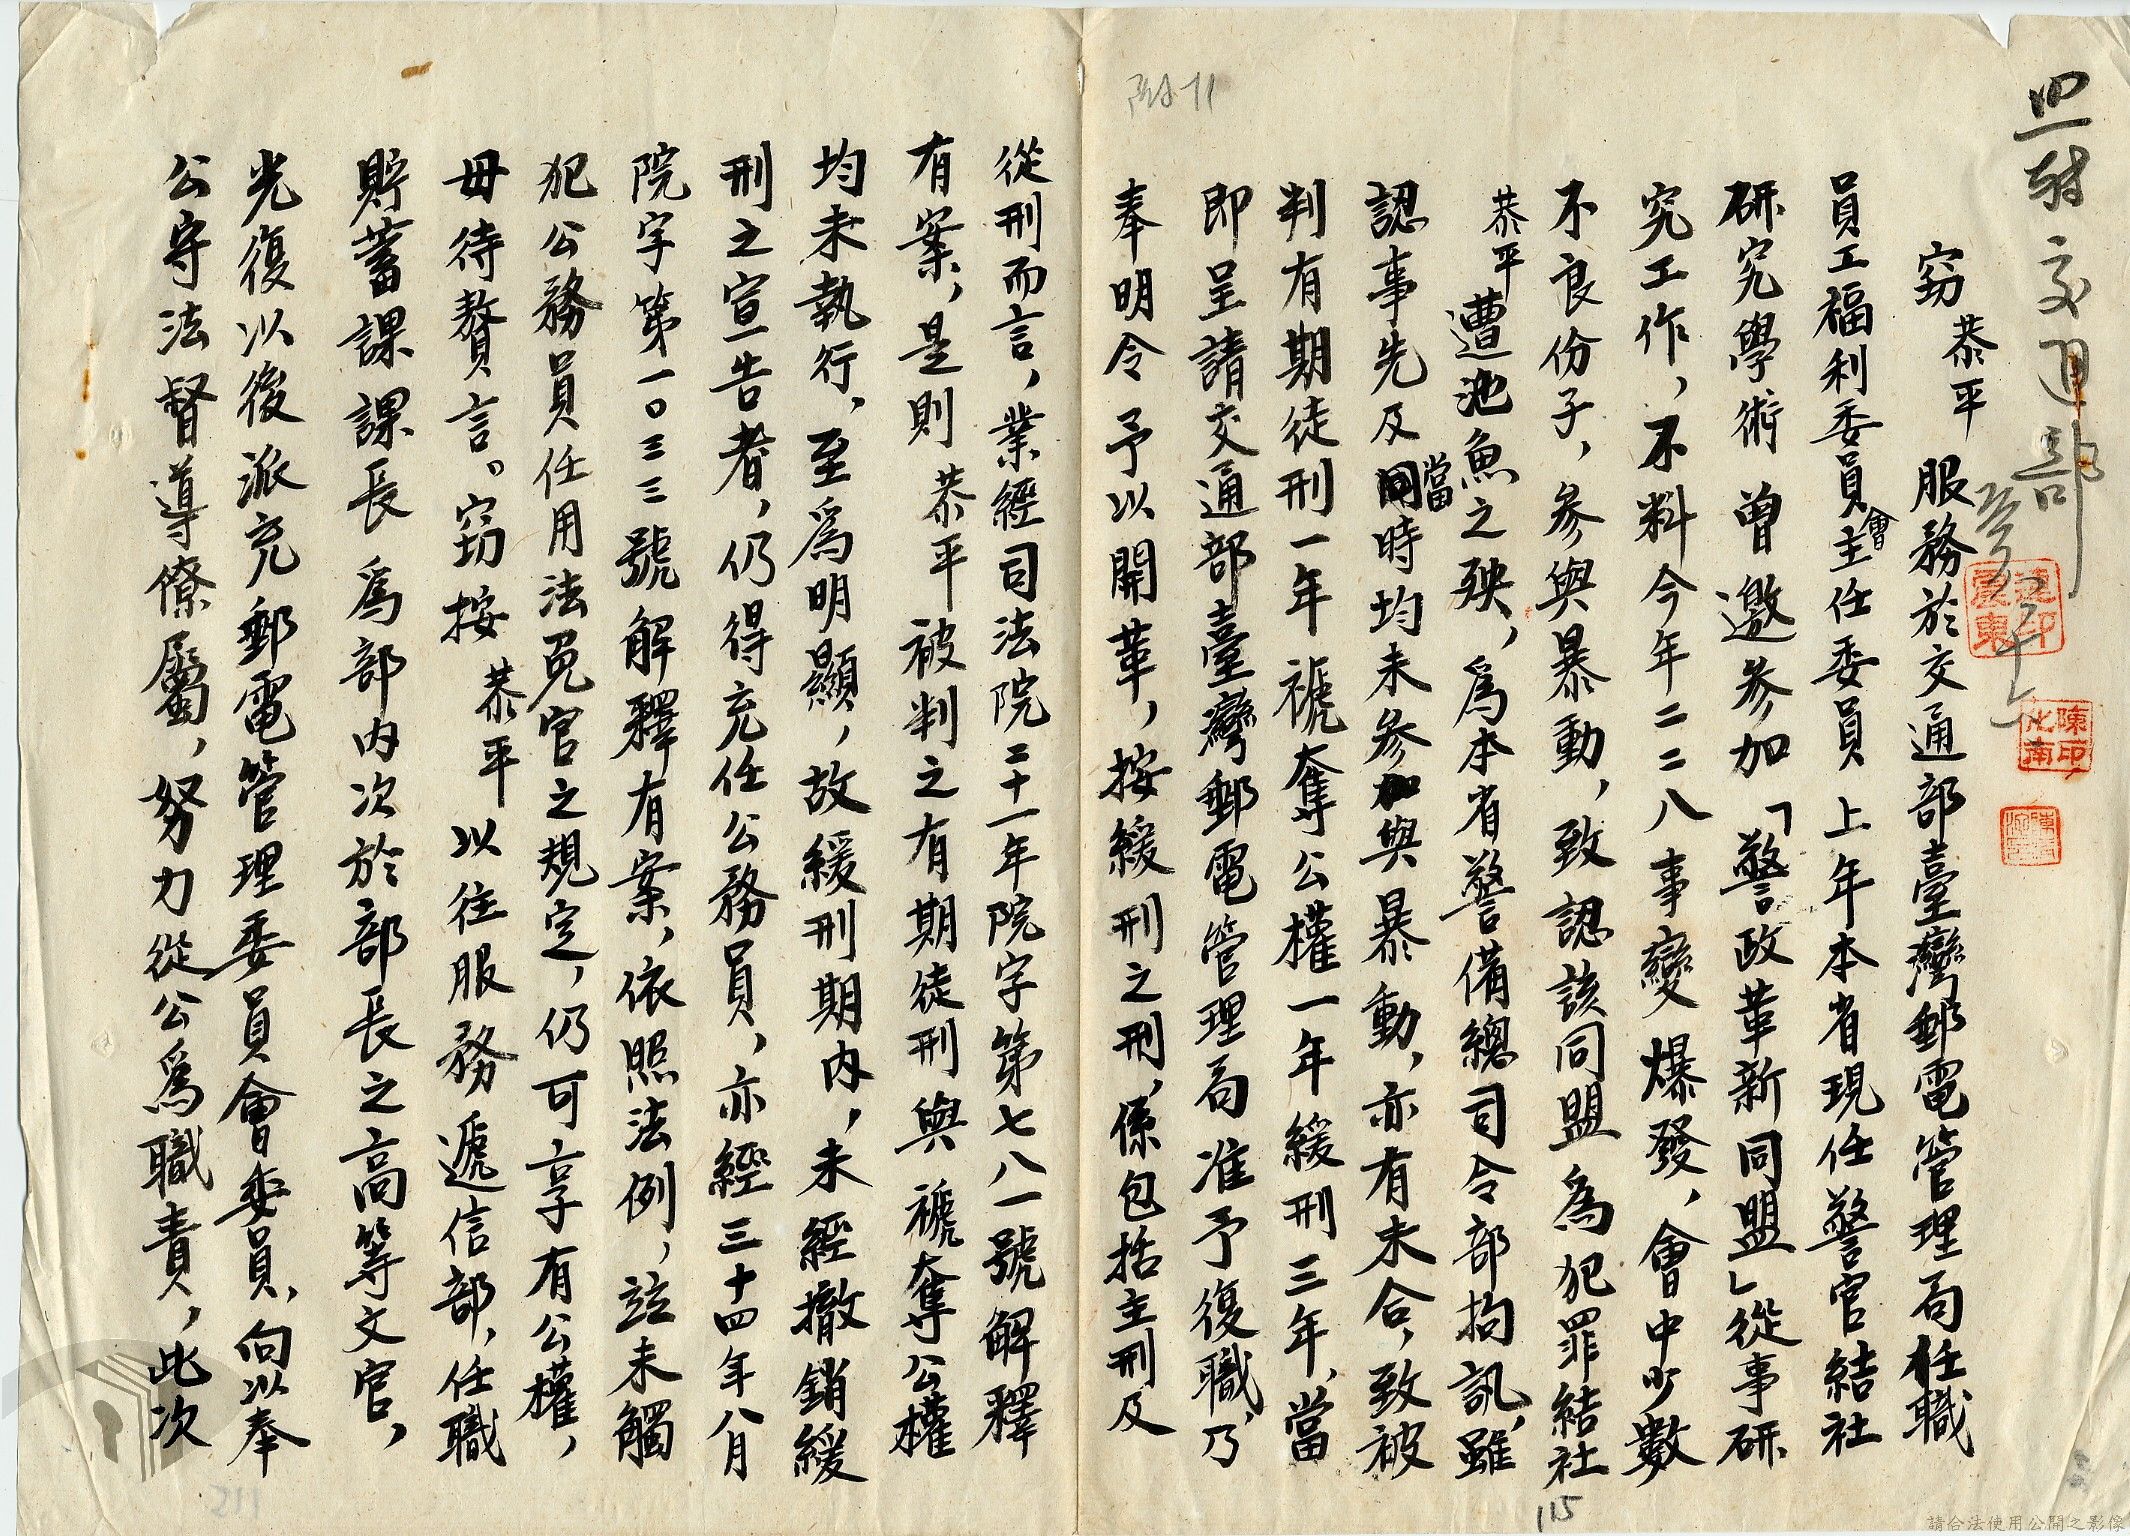 附11
交通部
竊恭平服務於交通部臺灣郵電管理局任職
員工福利委員會主任委員上年本省現任警官結社
研究學術曾邀參加「警政革新同盟」從事研
究工作，不料今年二二八事變爆發，會中少數
不良份子，參與暴動，致認該同盟為犯罪結社
恭平遭池魚之殃，為本省警備總司令部拘訊，雖
認事先及當時均未參與暴動，亦有未合，致被
判有期徒刑一年褫奪公權一年緩刑三年，當
即呈請交通部臺灣郵電管理局准予復職，乃
奉明令予以開革，按緩刑之刑，係包括主刑及
從刑而言，業經司法院二十一年院字第七八一號解釋
有案，是則恭平被判之有期徒刑與褫奪公權
均未執行，至為明顯，故緩刑期內，未經撤銷緩
刑之宣告者，仍得充任公務員，亦經三十四年八月
院字第一〇三三號解釋有案，依照法例，茲未觸
犯公務員任用法免官之規定，仍可享有公權，
毋待贅言。竊按恭平以往服務遞信部，任職
貯蓄課課長為部內次於部長之高等文官，
光復以後派充郵電管理委員會委員，向以奉
公守法督導僚屬，努力從公為職責，此次
陳印化南
115
211
請合法使用公開之影像